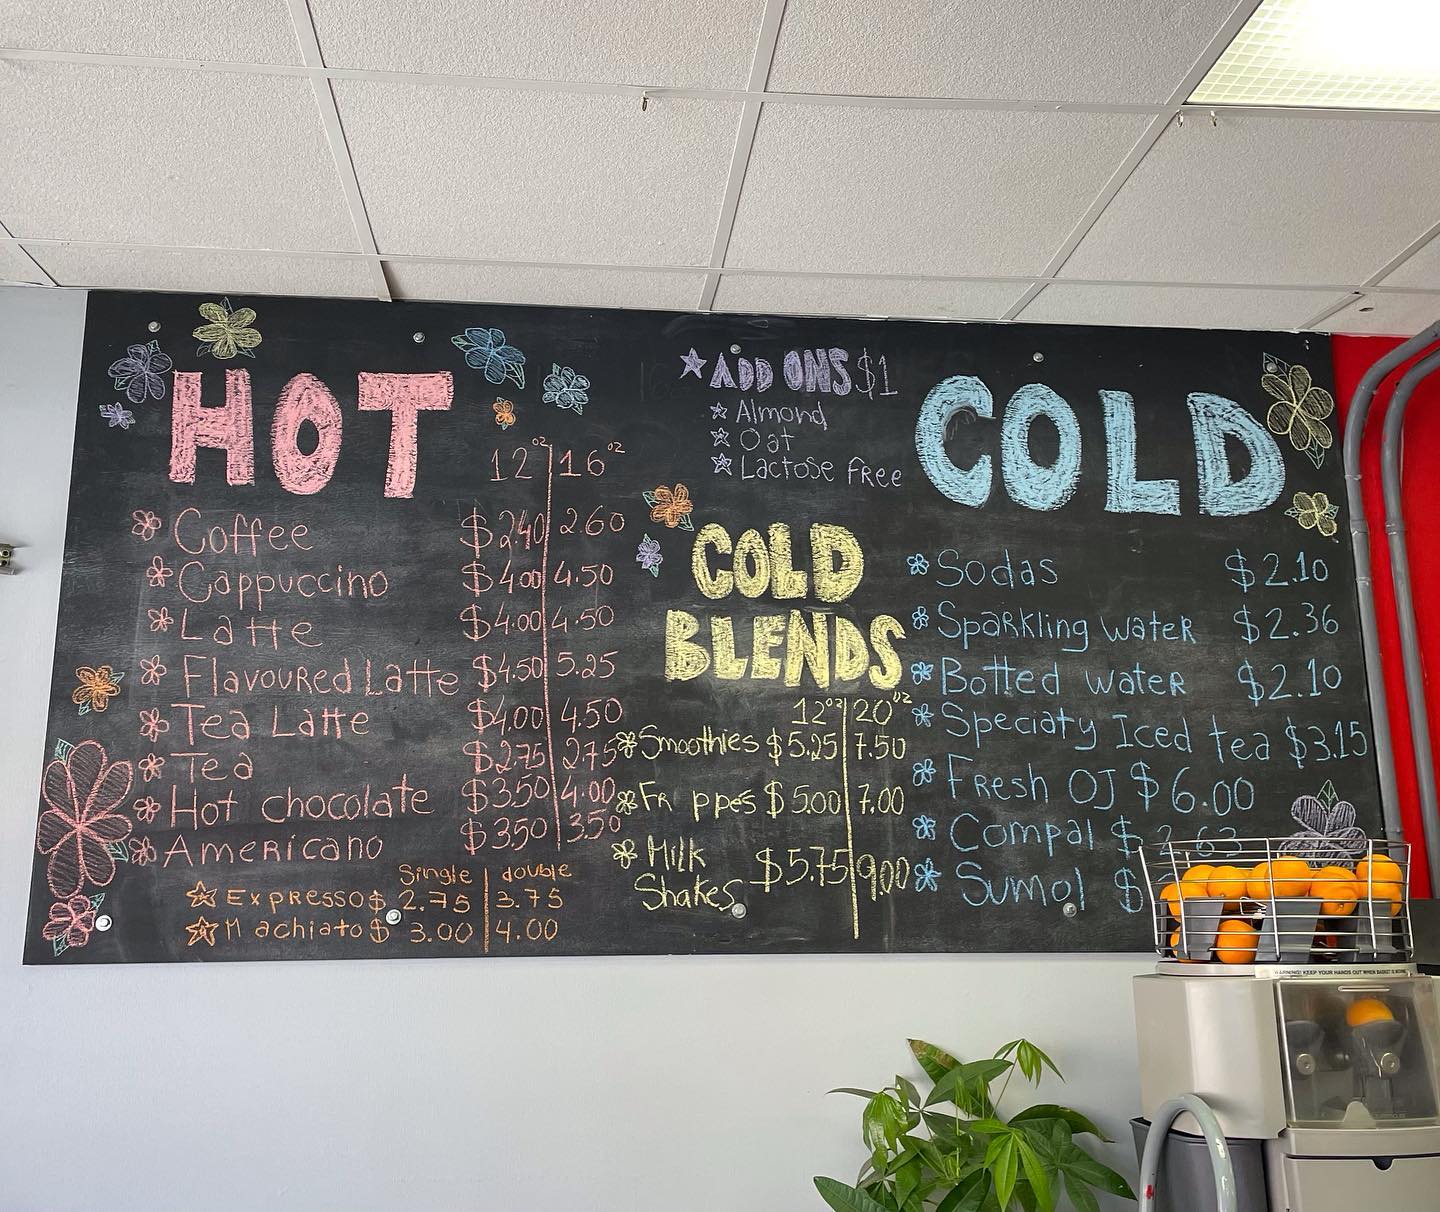 HOT
12oz 16oz
Coffee $2.40 2.60
Cappuccino $4.00 4.50
Latte $4.00 4.50
Flavoured Latte $4.50 5.25
Tea Latte $4.00 4.50
Tea $2.75 2.75
Hot chocolate $3.50 4.00
Americano $3.50 3.50
Single double
Expresso $2.75 3.75
Machiato $3.00 4.00
ADD ONS $1
Almond
Oat
Lactose Free
COLD
BLENDS
12oz 20oz
Smoothies $5.25 7.50
Frappes $5.00 7.00
Milk
Shakes $5.75 9.00
COLD
Sodas $2.10
Sparkling water $2.36
Botted water $2.10
Speciaty Iced tea $3.15
Fresh OJ $6.00
Compal $2.63
Sumol $
WARNING! KEEP YOUR HANDS OUT WHEN BASKET IS